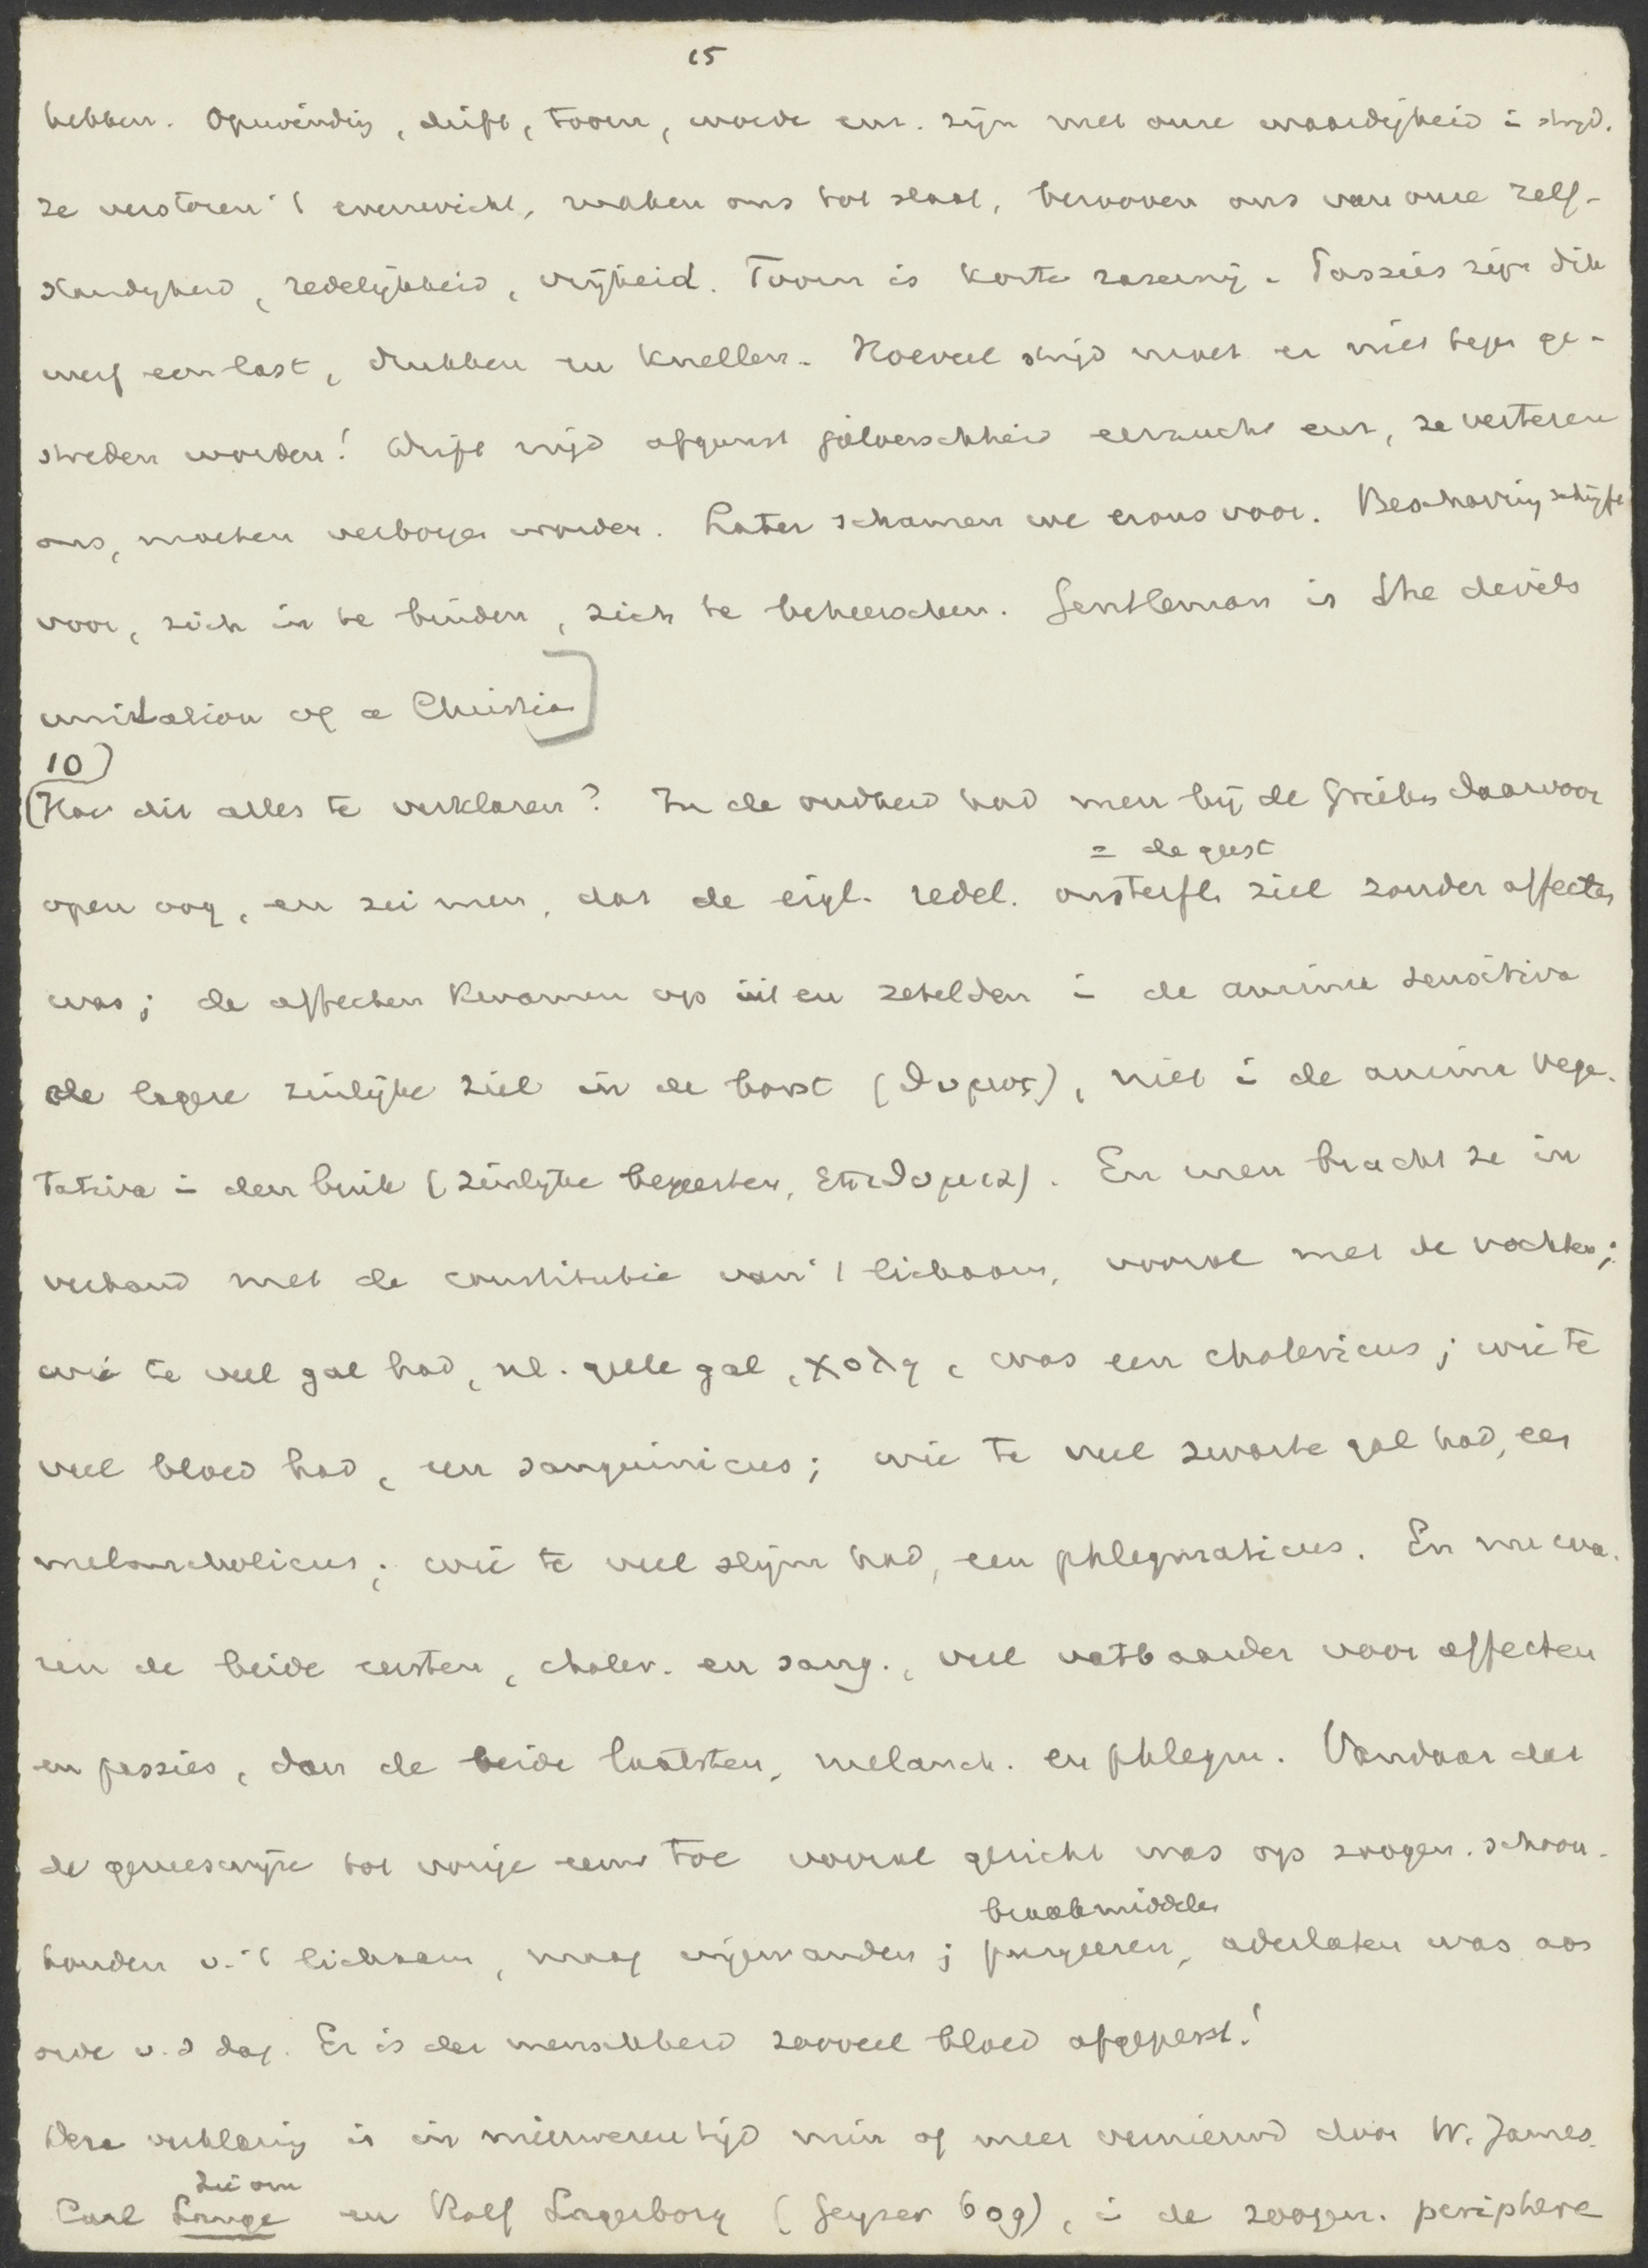 15
hebben. Opwinding, drift, toorn, woede enz. zijn met onze waardigheid in strijd.
ze verstoren 't evenwicht, maken ons tot slaaf, berooven ons van onze zelf-
standigheid, redelijkheid, vrijheid. Toorn is korte razernij. Passies zijn dik
werf een last, drukken en knellen. Hoeveel strijd moet er niet tegen ge-
streden worden! Drift nijd afgunst jaloerschheid eerzucht enz, ze verteren
ons, moeten verborgen worden. Later schamen we er ons voor. Beschaving schrijft
voor, zich in te binden, zich te beheerschen. Gentleman is the devils
imitation of a Christian]
10)
(Hoe dit alles te verklaren? In de oudheid had men bij de Grieken daarvoor
= de geest
open oog, en zei men, dat de eigl. redel. onsterfl. ziel zonder affecten
was; de affecten kwamen op uit en zetelden in de anima sensitiva
de lagere zinlijke ziel in de borst (θυμος), niet in de anima vege-
tativa in den buik (zinlijke begeerten, επιθυμια). En men bracht ze in
verband met de constitutie van 't lichaam, vooral met de vochten;
wie te veel gal had, nl. gele gal, χολη, was een cholericus; wie te
veel bloed had, een sanguinicus; wie te veel zwarte gal had, een
melancholicus; wie te veel slijm had, een phlegmaticus. En nu wa-
ren de beide eersten, choler. en sang., veel vatbaarder voor affecten
en passies, dan de beide laatsten, melanch. en phlegm. Vandaar dat
de geneeswijze tot vorige eeuw toe vooral gericht was op zoogen. schoon-
braakmiddelen
houden v. 't lichaam, maag ingewanden; purgeeren, aderlaten was aan
orde v. d dag. Er is der menschheid zooveel bloed afgeperst!
Deze verklaring is in nieuweren tijd min of meer vernieuwd door W. James.
zie om
Carl Lange en Rolf Lagerborg (Geyser 609), in de zoogen. periphere